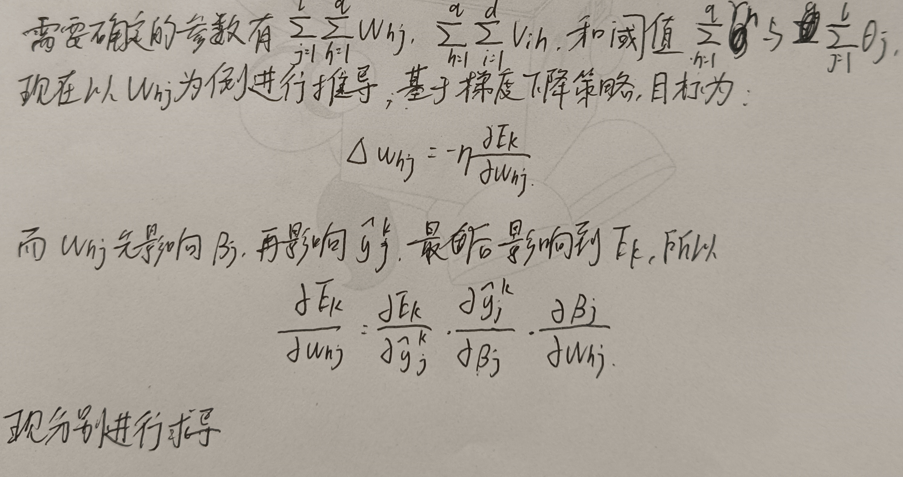 需要确定的参数有 $\sum_{j=1}^{l}\sum_{h=1}^{q} w_{hj}$, $\sum_{h=1}^{q}\sum_{i=1}^{d} v_{ih}$, 和阈值 $\sum_{h=1}^{q} \gamma_h$ 与 $\sum_{j=1}^{l} \theta_j$,
现在以 $w_{hj}$ 为例进行推导,基于梯度下降策略,目标为:
$\Delta w_{hj} = -\eta \frac{\partial E_k}{\partial w_{hj}}$.
而 $w_{hj}$ 先影响 $\beta_j$, 再影响 $\hat{y}_j^k$, 最后影响到 $E_k$, 所以
$\frac{\partial E_k}{\partial w_{hj}} = \frac{\partial E_k}{\partial \hat{y}_j^k} \cdot \frac{\partial \hat{y}_j^k}{\partial \beta_j} \cdot \frac{\partial \beta_j}{\partial w_{hj}}$.
现分别进行求导